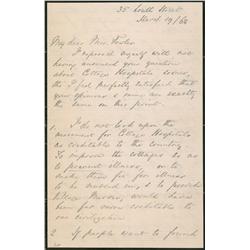 35 South Street
March 19/68
My dear Mrs. Foster
I reproach myself with not
having answered your question
about Cottage Hospitals sooner,
tho' I feel perfectly satisfied that
your opinions & mine are exactly
the same on this point.
1. I do not look upon the
movement for Cottage Hospitals
as creditable to the country.
To improve the cottages so as
to prevent illness, or to
make them fit for illness
to be nursed in, & to provide
Village Nurses, would have
been far more creditable to
our civilization
2. If people want to found